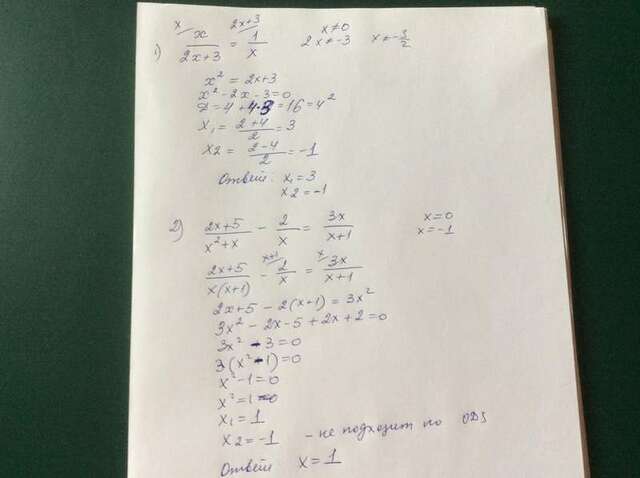 x 2x+3
1) x/(2x+3) = 1/x x≠0 2x≠-3 x≠-3/2
x² = 2x+3
x²-2x-3=0
D=4+4·3=16=4²
x₁=(2+4)/2=3
x2=(2-4)/2=-1
Ответ: x₁=3
x2=-1
2) (2x+5)/(x²+x) - 2/x = 3x/(x+1) x=0
x=-1
x+1 x
(2x+5)/(x(x+1)) - 2/x = 3x/(x+1)
2x+5-2(x+1)=3x²
3x²-2x-5+2x+2=0
3x²-3=0
3(x²-1)=0
x²-1=0
x²=1
x₁=1
x2=-1 - не подходит по ОДЗ
Ответ x=1